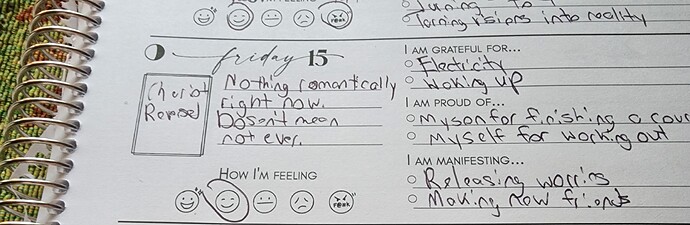 Turning visions into reality
friday 15
Chariot
Nothing romantically
right now.
Doesn't mean
not ever.
HOW I'M FEELING
F@#K
I AM GRATEFUL FOR...
Electricity
Waking up
I AM PROUD OF...
My son for finishing a cour
Myself for working out
I AM MANIFESTING...
Releasing worries
Making new friends